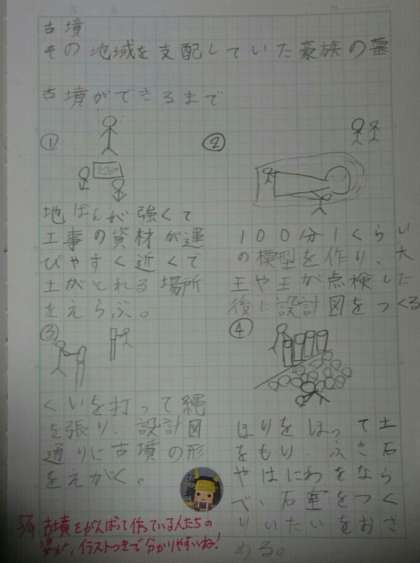 古墳
その地域を支配していた豪族の墓
古墳ができるまで
①
地ばんが強くて
工事の資材が運
びやすく近くて
土がとれる場所
をえらぶ。
②
100分1くらい
の模型を作り、大
王や王が点検した
後に設計図をつくる
③
くいを打って縄
を張り、設計図
通りに古墳の形
をえがく。
④
ほりをほって土
をもり、ふき石
やはにわをなら
べ、石室をつく
りいたいをおさ
める。
古墳をがんばって作っている人たちの
姿が、イラストつきで分かりやすいね!